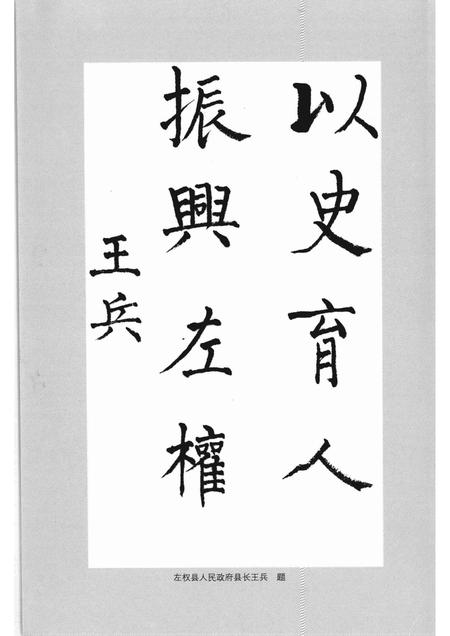 以史育人
振興左權
王兵
左权县人民政府县长王兵　题